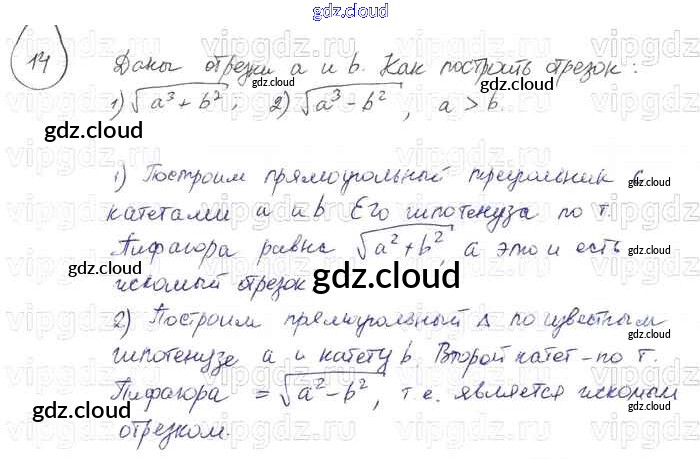 gdz.cloud
14 Даны отрезки a и b. Как построить отрезок:
1) √a³ + b²; 2) √a³ - b², a > b.
gdz.cloud
gdz.cloud
1) Построим прямоугольный треугольник с
gdz.cloud
катетами a и b. Его гипотенуза по т.
gdz.cloud
Пифагора равна √a² + b², а это и есть
gdz.cloud
искомый отрезок
gdz.cloud
2) Построим прямоугольный Δ по известным
гипотенузе a и катету b. Второй катет - по т.
gdz.cloud
Пифагора = √a² - b², т.е. является искомым
gdz.cloud
отрезком.